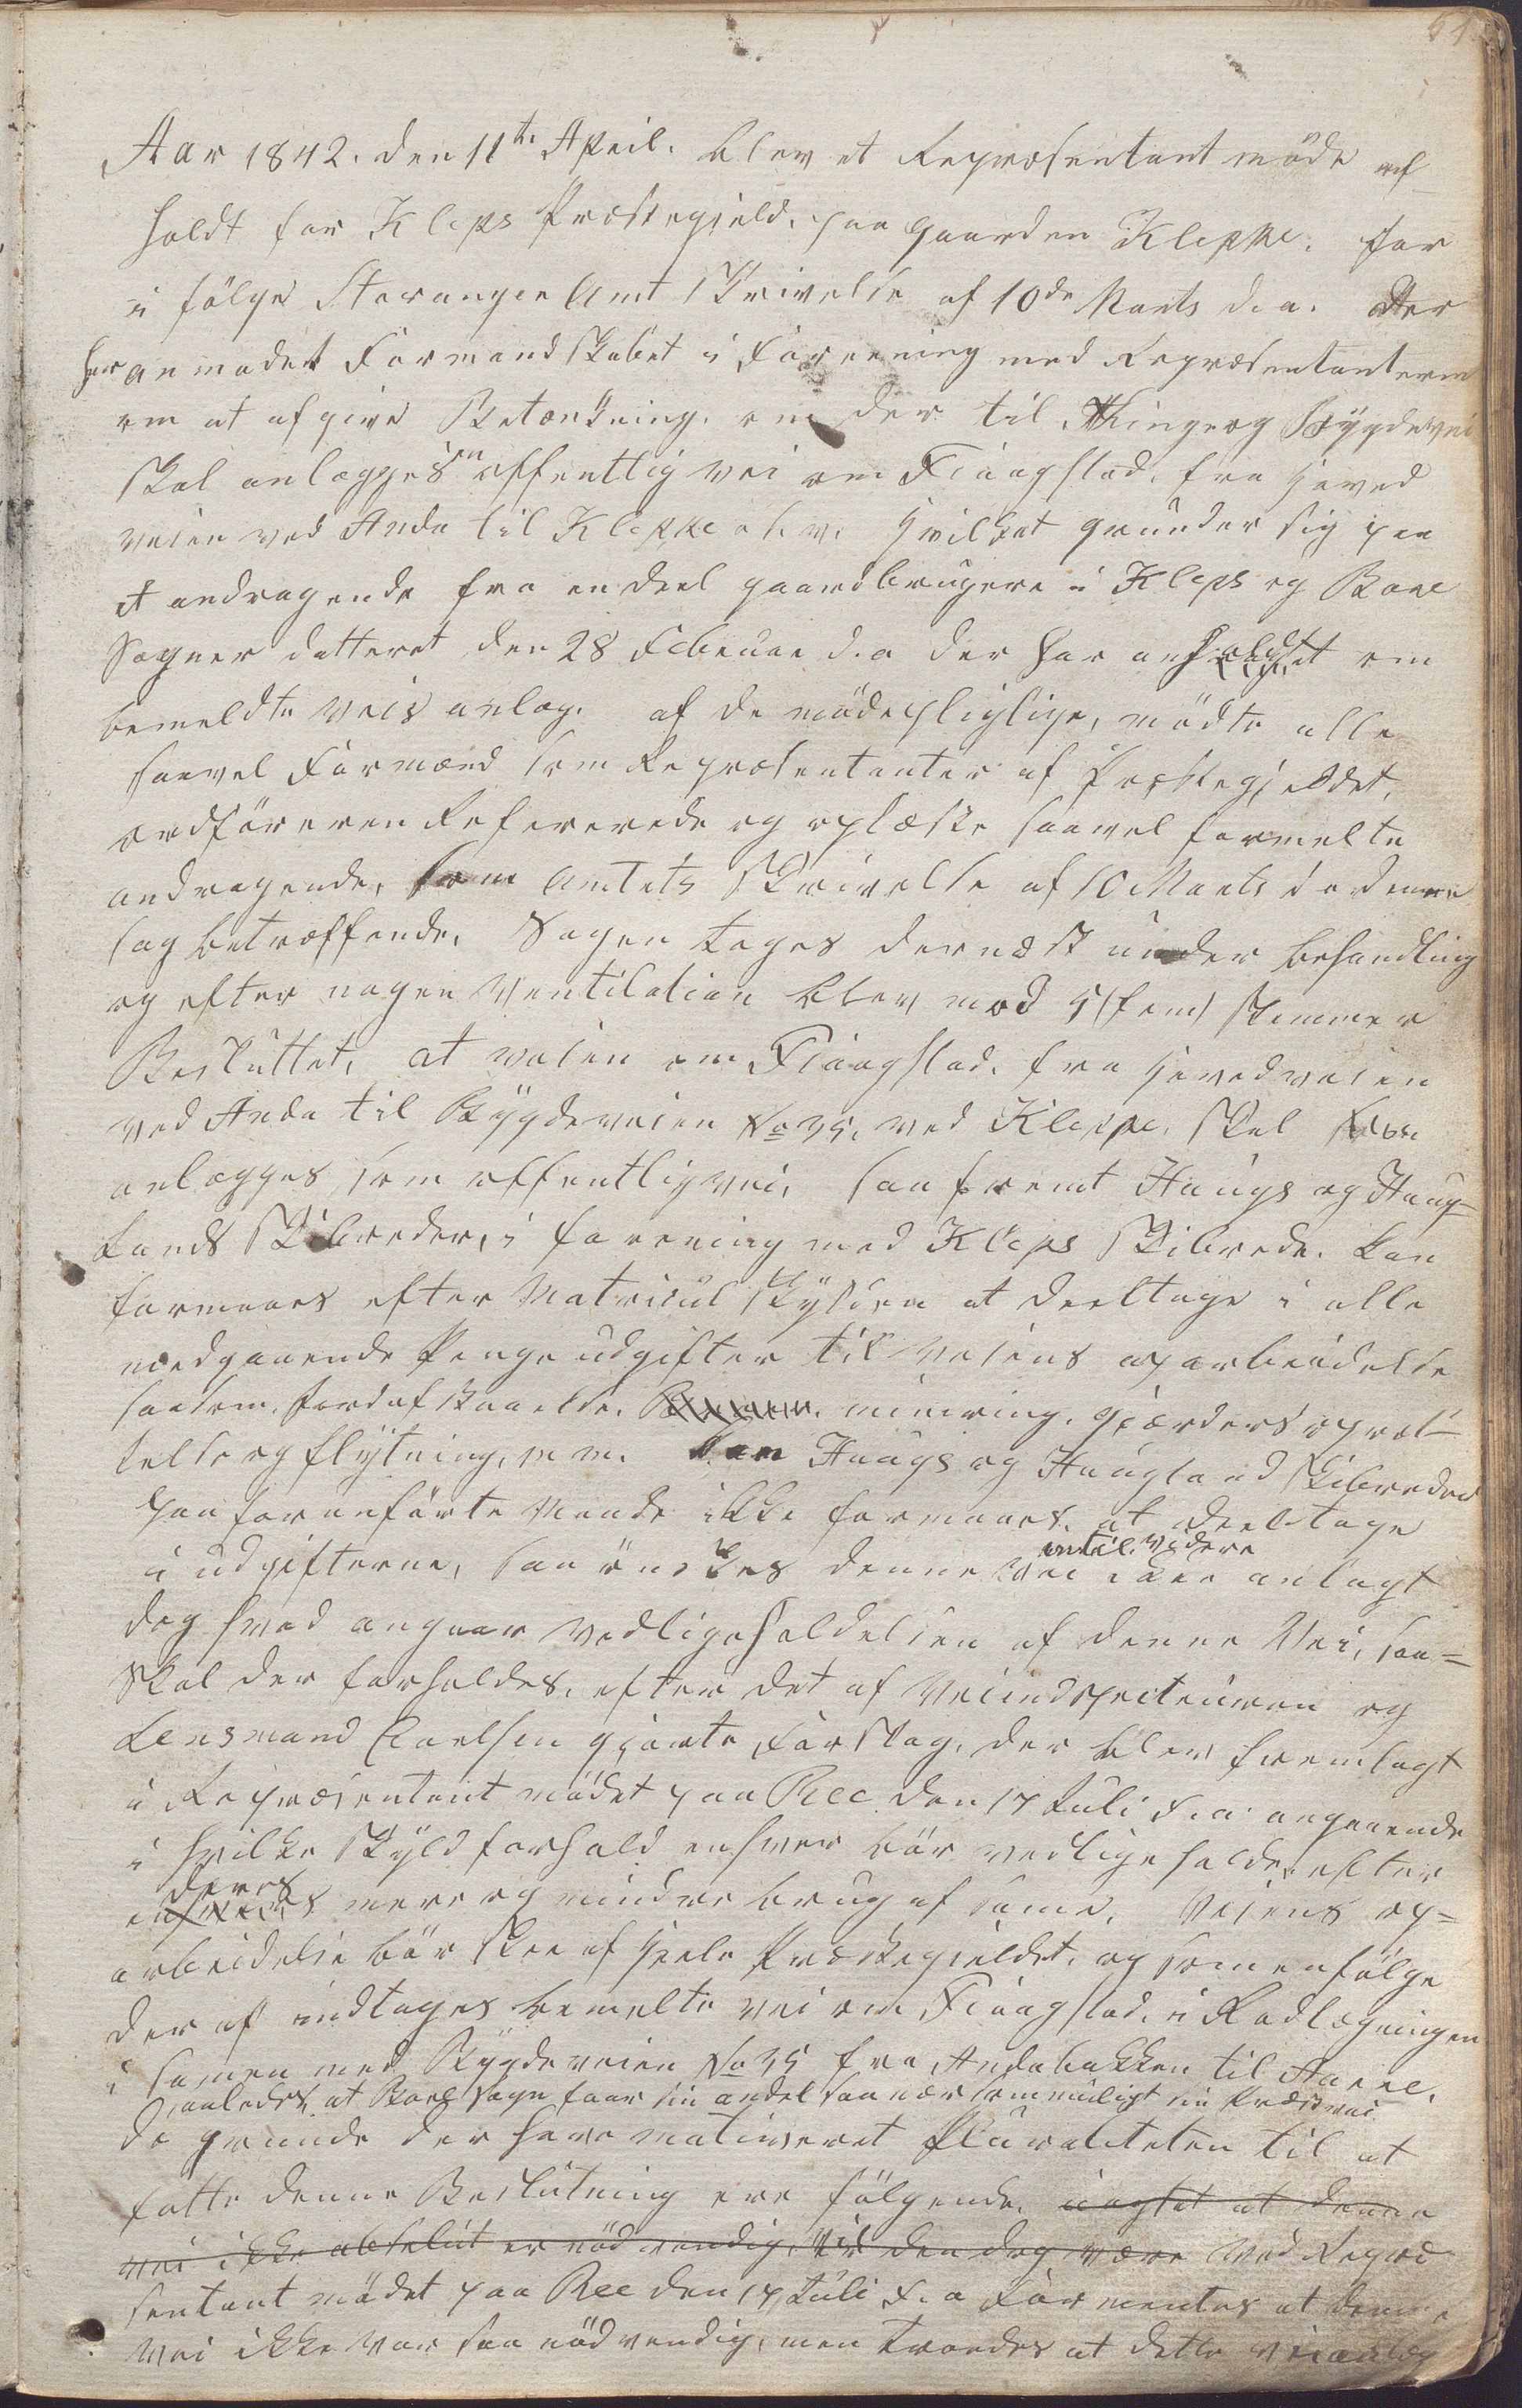 51.
Aar 1842. den 11te April. blev et Repræsentant møde af-
holdt for Kleps Præstegjeld. paa Gaarden Kleppe. for
i følge Stavanger Amt Skrivelse af 10de Marts d. a. der
har anmodet Formandskabet i Forening med Repræsentanterne
om at afgive Betænkning. om der til Thinge og Bygdevei
skal anlægges en offentlig vei om Tiaagstad. fra Hoved
veien ved Anda til Kleppe o. s. v. Hvilket grunder sig paa
et andragende fra en deel gaardbrugere i Kleps og Boree
Sogner datteret den 28 Februar d. a der har anholdt et om
bemeldte veis anlæg. af de mødepligtige, mødte alle
saavel Formænd som Repræsentanter af Præstegjeldet.
ordføreren Refererede og oplæste saavel formelte
andragende, som Amtets Skrivelse af 10 Marts d. a denne
sag betræffende. Sagen toges dernæst under behandling
og efter nogen Ventilation blev mod 5 (fem) stemmer
Besluttet, at veien om Tiaagstad. fra Hovedveien
ved Anda til Bygdeveien No 35. ved Kleppe. skal
anlægges som offentlig vei, saafremt Haugs og Haug-
lands Skibreder, i forening med Kleps Skibrede. kan
formaaes efter Matricul Skylden at deeltage i alle
medgaaende Penge udgifter til Veiens oparbeidelse
saasom. Jordafstaaelse. minering. gjærders opret-
telse og flytning, m m. kan Haugs og Haugland Skibreder
paa foranførte Maade ikke formaaes. at deeltage
i udgifterne, saa ønskes denne vei indtil videre ikke anlagt
dog hvad angaaer vedligeholdelsen af denne Vei, saa=
skal der forholdes. efter det af Veiindspecteuren og
Lensmand Carlsen gjorte Forslag. der blev fremlagt
i Repræsentant mødet paa Ree den 17 Juli f. a. angaaende
i hvilke Skyld forhold enhver bør vedligeholde. efter
deres mere og mindre brug af samme. Veiens op=
arbeidelse bør skee af heele Præstegjeldet. og som en følge
der af indtages bemelte vei om Tiaagstad. i Rodlægningen
i samen med Bygdeveien No 35 fra Andabakken til
Saaledes, at Boree Sogn faar sin andel saa nær som muligt sin
de grunde der have motiveret Pluraliteten til at
fatte denne Beslutning ere følgende. uagtet at denne
vei ikke absolut er nødvendig, vil den dog være Ved Repræ
sentant mødet paa Ree den 17 Juli f. a formentes at denne
vei ikke var saa nødvendig, men troedes at dette veianlæg